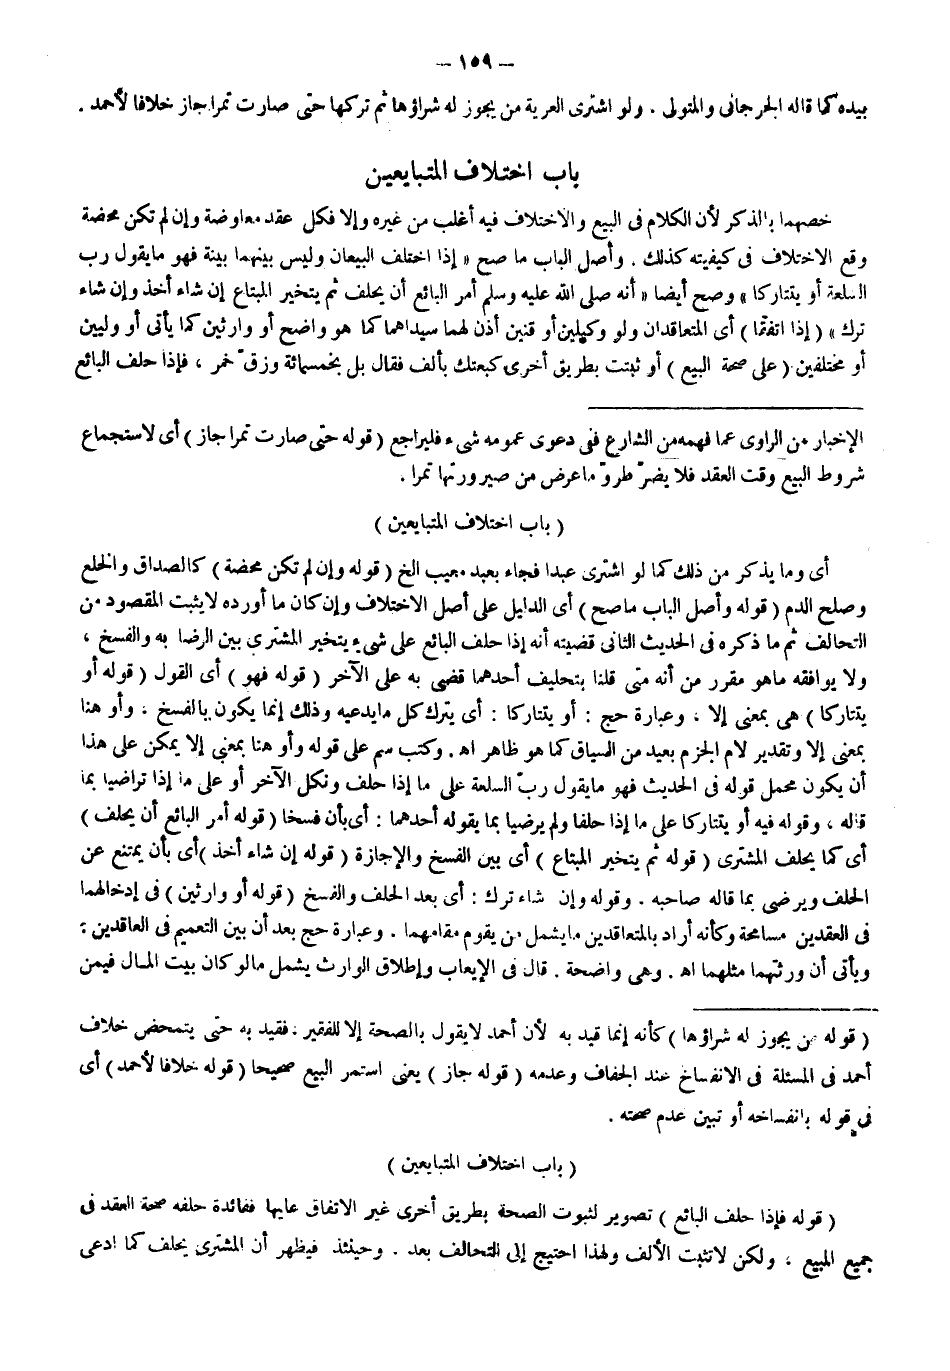 — ١٥٩ —
بيده كما قاله الجرجانى والمتولى . ولو اشترى العرية من يجوز له شراؤها ثم تركها حتى صارت تمرا جاز خلافا لأحمد .
باب اختلاف المتبايعين
خصهما بالذكر لأن الكلام فى البيع والاختلاف فيه أغلب من غيره وإلا فكل عقد معاوضة وإن لم تكن محضة
وقع الاختلاف فى كيفيته كذلك . وأصل الباب ما صح « إذا اختلف البيعان وليس بينهما بينة فهو مايقول رب
السلعة أو يتتاركا » وصح أيضا « أنه صلى الله عليه وسلم أمر البائع أن يحلف ثم يتخير المبتاع إن شاء أخذ وإن شاء
ترك » ( إذا اتفقا ) أى المتعاقدان ولو وكيلين أو قنين أذن لهما سيداهما كما هو واضح أو وارثين كما يأتى أو وليين
أو مختلفين ( على صحة البيع ) أو ثبتت بطريق أخرى كبعتك بألف فقال بل بخمسمائة وزق خمر ، فإذا حلف البائع
الإخبار من الراوى عما فهمه من الشارع ففى دعوى عمومه شىء فليراجع ( قوله حتى صارت تمرا جاز ) أى لاستجماع
شروط البيع وقت العقد فلا يضرّ طروّ ماعرض من صيرورتها تمرا .
( باب اختلاف المتبايعين )
أى وما يذكر من ذلك كما لو اشترى عبدا فجاء بعبد معيب الخ ( قوله وإن لم تكن محضة ) كالصداق والخلع
وصلح الدم ( قوله وأصل الباب ماصح ) أى الدليل على أصل الاختلاف وإن كان ما أورده لايثبت المقصود من
التحالف ثم ما ذكره فى الحديث الثانى قضيته أنه إذا حلف البائع على شىء يتخير المشترى بين الرضا به والفسخ ،
ولا يوافقه ماهو مقرر من أنه متى قلنا بتحليف أحدهما قضى به على الآخر ( قوله فهو ) أى القول ( قوله أو
يتتاركا ) هى بمعنى إلا ، وعبارة حج : أو يتتاركا : أى يترك كل مايدعيه وذلك إنما يكون بالفسخ ، وأو هنا
بمعنى إلا وتقدير لام الجزم بعيد من السياق كما هو ظاهر اه . وكتب سم على قوله وأو هنا بمعنى إلا يمكن على هذا
أن يكون محمل قوله فى الحديث فهو مايقول ربّ السلعة على ما إذا حلف ونكل الآخر أو على ما إذا تراضيا بما
قاله ، وقوله فيه أو يتتاركا على ما إذا حلفا ولم يرضيا بما يقوله أحدهما : أى بأن فسخا ( قوله أمر البائع أن يحلف )
أى كما يحلف المشترى ( قوله ثم يتخير المبتاع ) أى بين الفسخ والإجازة ( قوله إن شاء أخذ ) أى بأن يمتنع عن
الحلف ويرضى بما قاله صاحبه . وقوله وإن شاء ترك : أى بعد الحلف والفسخ ( قوله أو وارثين ) فى إدخالهما
فى العقدين مسامحة وكأنه أراد بالمتعاقدين مايشمل من يقوم مقامهما . وعبارة حج بعد أن بين التعميم فى العاقدين :
ويأتى أن ورثتهما مثلهما اه . وهى واضحة . قال فى الإيعاب وإطلاق الوارث يشمل مالو كان بيت المال فيمن
( قوله من يجوز له شراؤها ) كأنه إنما قيد به لأن أحمد لايقول بالصحة إلا للفقير ، فقيد به حتى يتمحض خلاف
أحمد فى المسئلة فى الانفساخ عند الجفاف وعدمه ( قوله جاز ) يعنى استمر البيع صحيحا ( قوله خلافا لأحمد ) أى
فى قوله بانفساخه أو تبين عدم صحته .
( باب اختلاف المتبايعين )
( قوله فإذا حلف البائع ) تصوير لثبوت الصحة بطريق أخرى غير الاتفاق عليها ففائدة حلفه صحة العقد فى
جميع المبيع ، ولكن لاتثبت الألف ولهذا احتيج إلى التحالف بعد . وحينئذ فيظهر أن المشترى يحلف كما ادعى